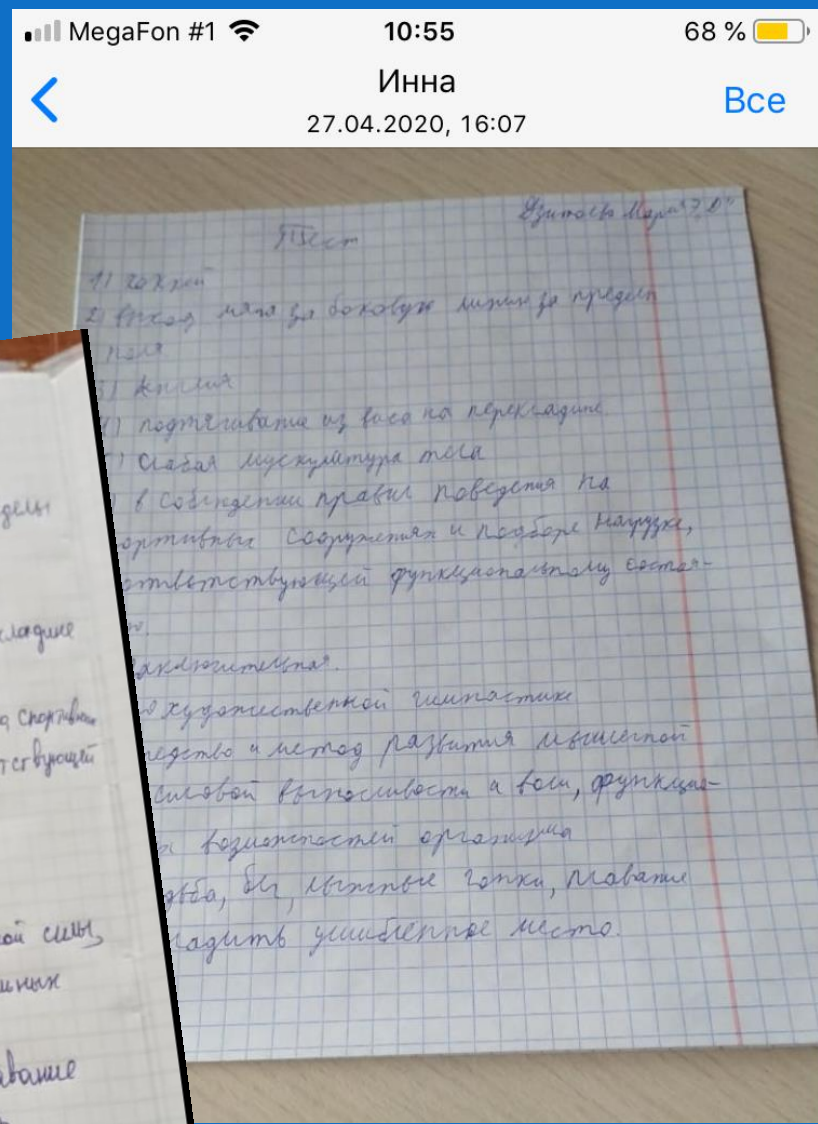 MegaFon #1
10:55
68 %
Инна
Все
27.04.2020, 16:07
Тест
1) хоккей
2) выход мяча за боковую линию за пределы
поля
3) Англия
4) подтягивание из виса на перекладине
5) Слабая мускулатура тела
в соблюдении правил поведения на
ортивных сооружениях и подборе нагрузки,
ответствующей функциональному состоя-
ю.
аключительная.
художественной гимнастике
редство и метод развития мышечной
силовой выносливости и воли, функцио-
возможностей организма
дьба, бег, лыжные гонки, плавание
ладить ушибленное место.
делы
кладине
а спортивны
тствующей
ой силы,
вание